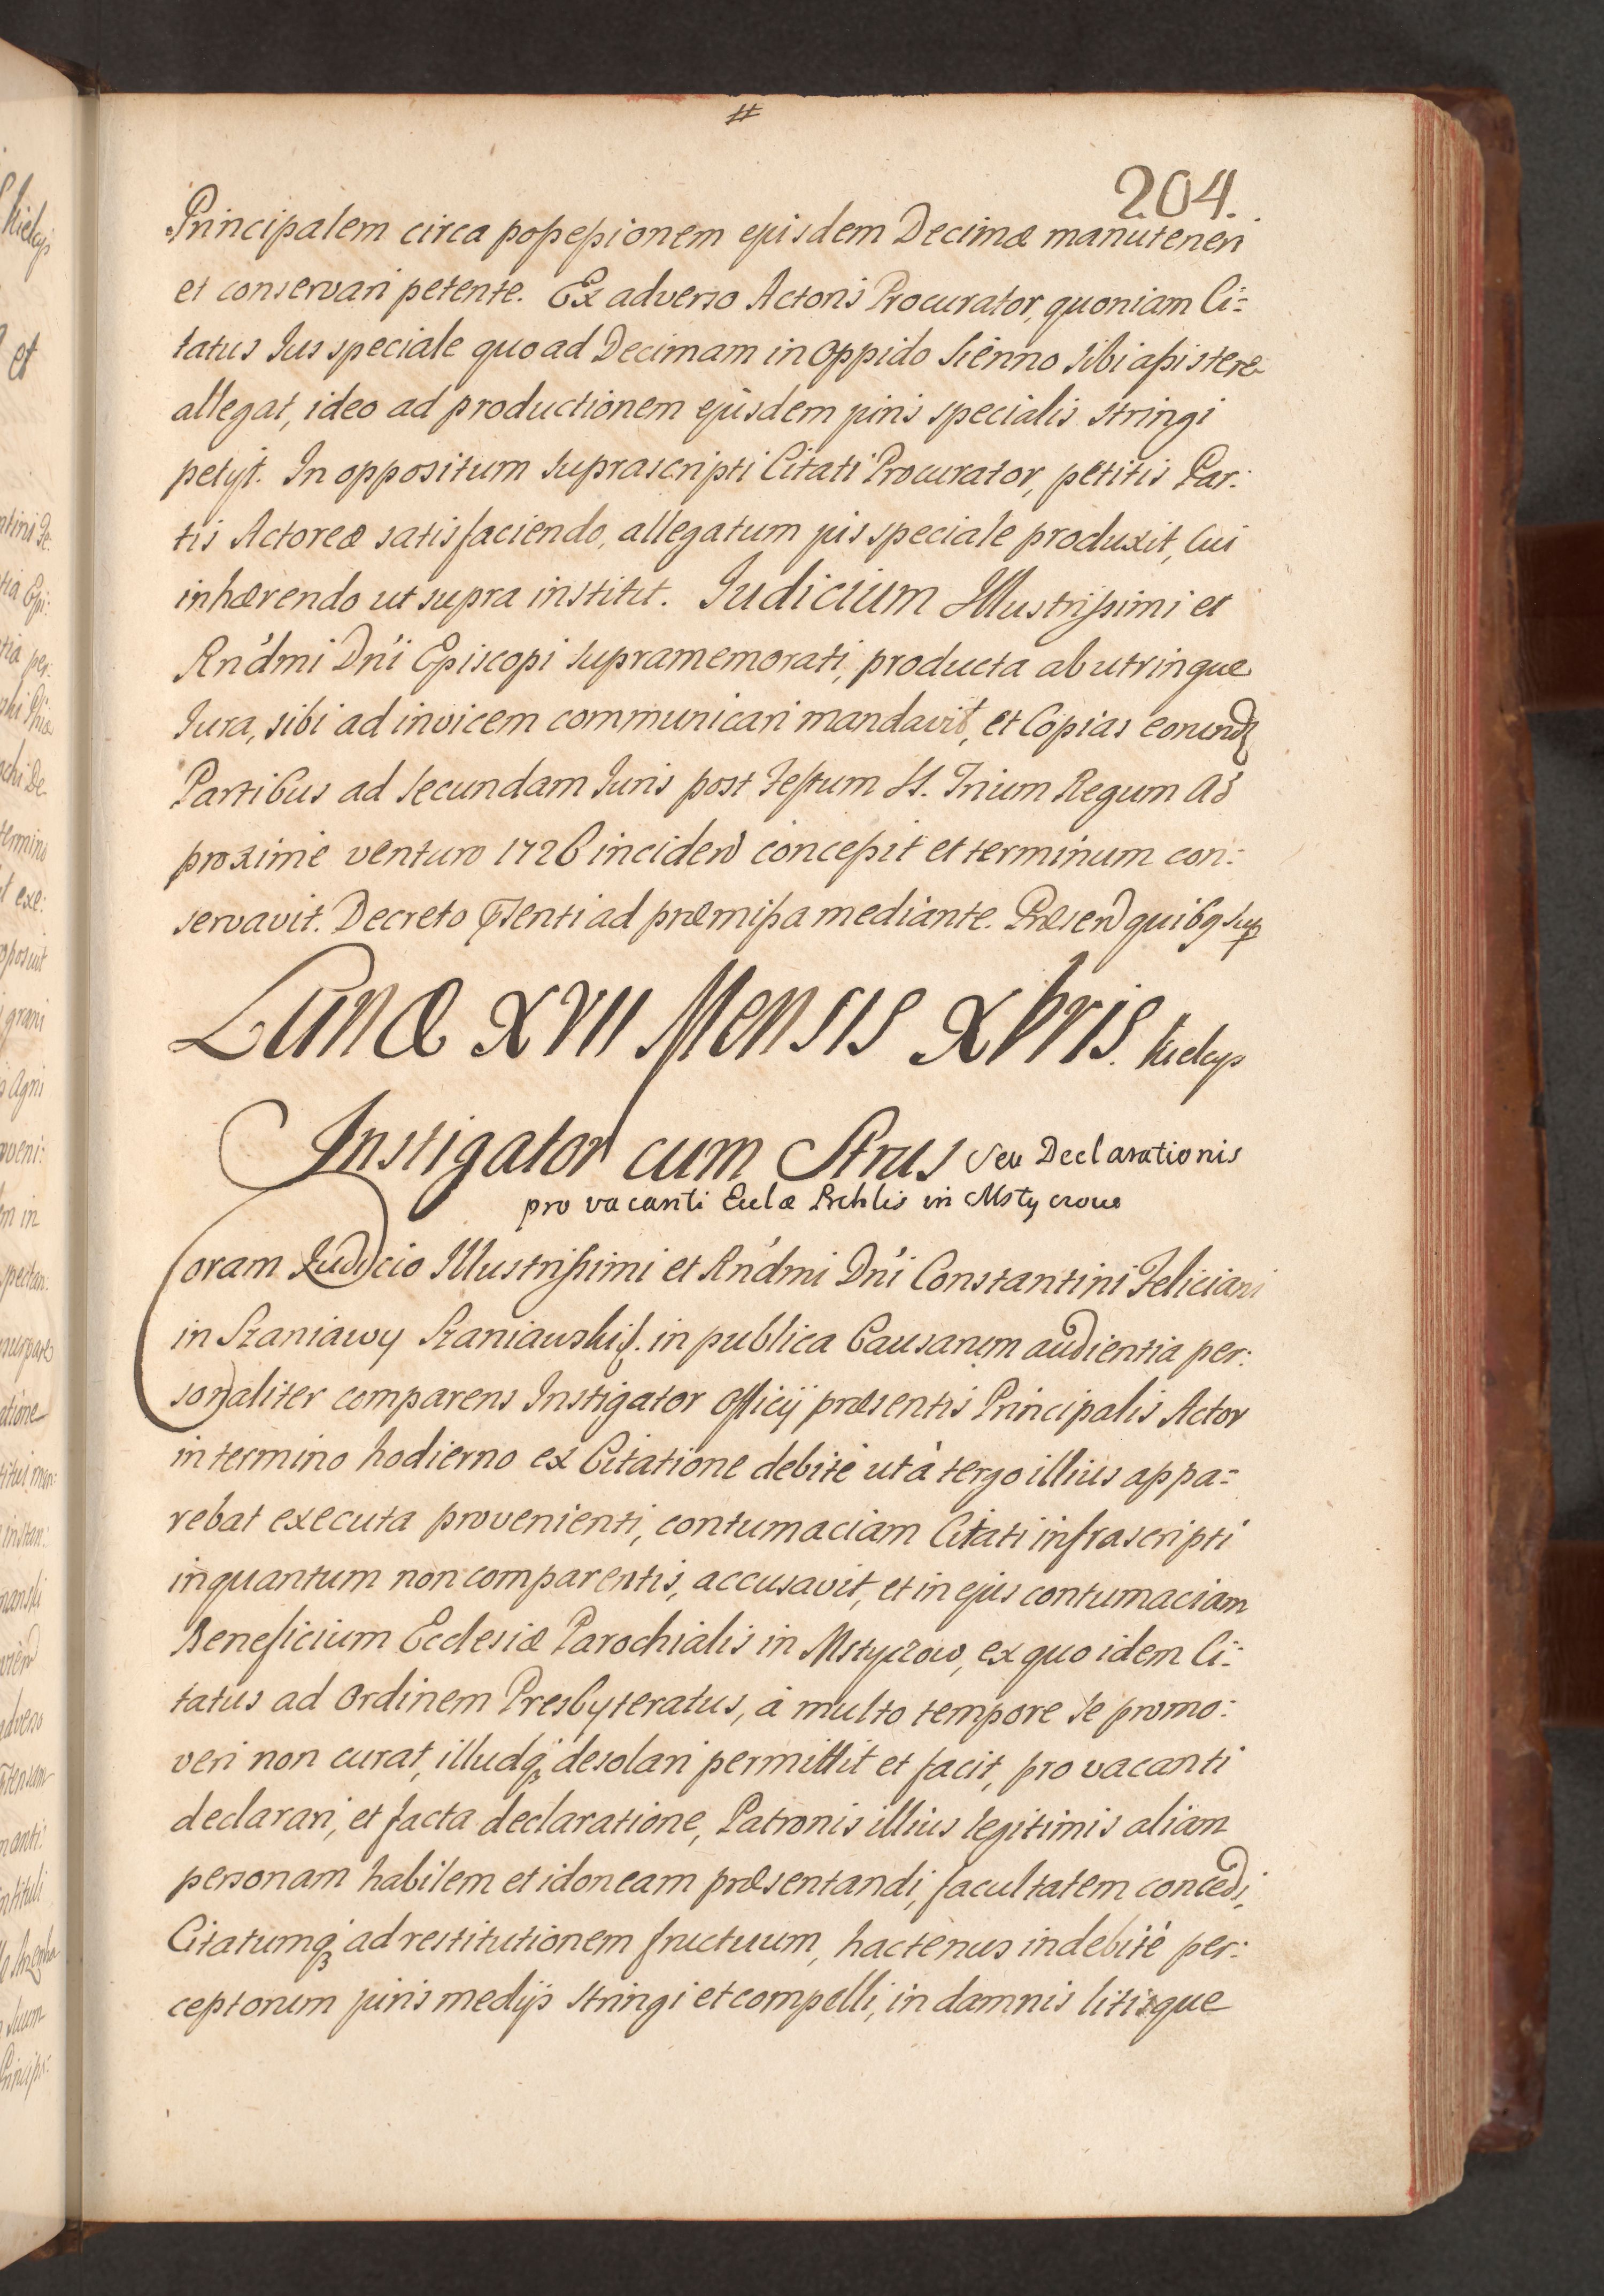 #
204.
Principalem circa possessionem ejusdem Decimæ manuteneri
et conservari petente. Ex adverso Actoris Procurator, quoniam Ci=
tatus Jus speciale quo ad Decimam in Oppido Sienno sibi assistere
allegat, ideo ad productionem ejusdem juris specialis stringi
petijt. In oppositum suprascripti Citati Procurator, petitis Par:
tis Actoreæ satisfaciendo, allegatum jus speciale produxit, cui
inhærendo ut supra institit. Judicium Illustrissimi et
Rndmi Dni Episcopi supramemorati, producta ab utrinque
Jura, sibi ad invicem communicari mandavit, et Copias eorund
Partibus ad secundam Juris post Festum SS. Trium Regum A°
proxime venturo 1726 inciden concessit et terminum con:
servavit. Decreto psenti ad præmissa mediante. Præsen quibq sup
Lunæ XVII Mensis Xbris. Kielcys
Instigator cum Strus seu Declarationis
pro vacanti Eclæ Prchlis in Mstyczow
Coram Judicio Illustrissimi et Rndmi Dni Constantini Feliciani
in Szaniawy Szaniawski &. in publica Causarum audientia per:
sonaliter comparens Instigator Officij præsentis Principalis Actor
in termino hodierno ex Citatione debite ut à tergo illius appa=
rebat executa provenienti, contumaciam Citati infrascripti
inquantum non comparentis, accusavit, et in ejus contumaciam
Beneficium Ecclesiæ Parochialis in Mstyczow, ex quo idem Ci:
tatus ad Ordinem Presbyteratus, à multo tempore se promo:
veri non curat, illudq desolari permittit et facit, pro vacanti
declarari, et facta declaratione, Patronis illius legitimis aliam
personam habilem et idoneam præsentandi, facultatem concedi,
Citatumq ad restitutionem fructuum, hactenus indebité per:
ceptorum juris medijs stringi et compelli, in damnis litisque